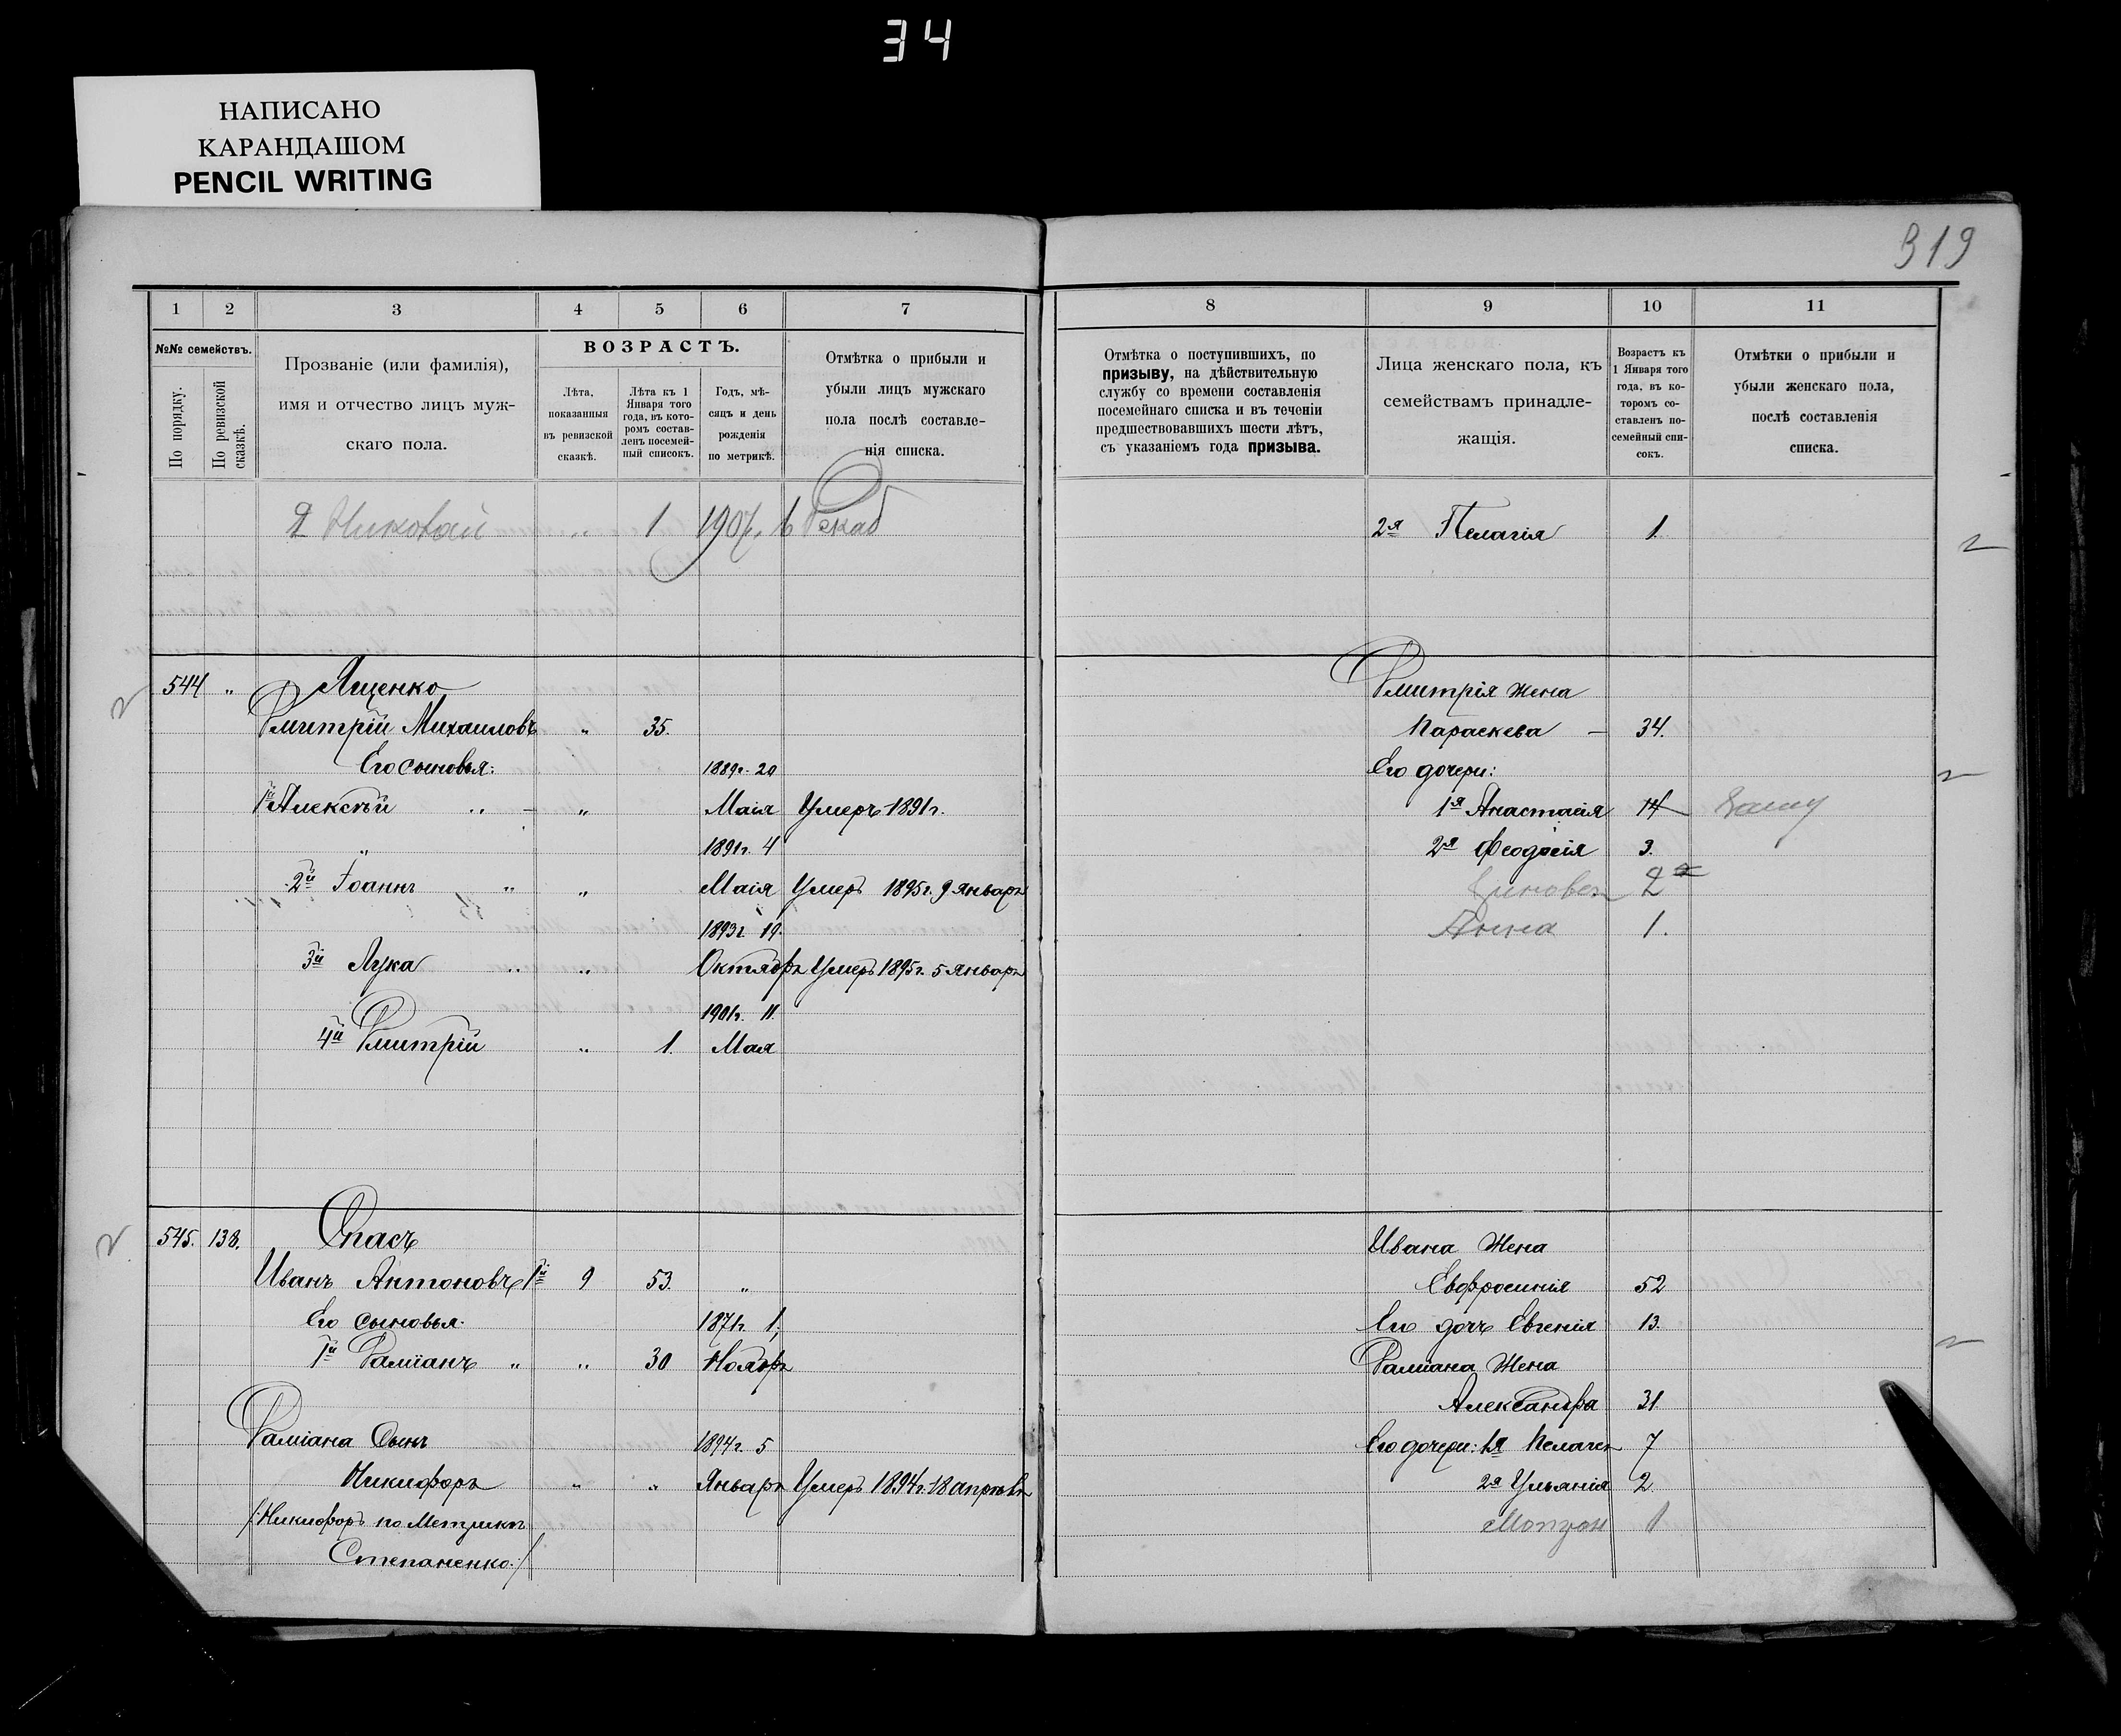 34
НАПИСАНО
КАРАНДАШОМ
PENCIL WRITING
319
1 2 3 4 5 6 7
№№ семействъ.
По порядку.
По ревизской сказкѣ.
Прозваніе (или фамилія),
имя и отчество лицъ муж-
скаго пола.
ВОЗРАСТЪ.
Лѣта,
показанныя
въ ревизской
сказкѣ.
Лѣта къ 1
Января того
года, въ кото-
ромъ состав-
ленъ посемей-
ный списокъ.
Годъ, мѣ-
сяцъ и день
рожденія
по метрикѣ.
Отмѣтка о прибыли и
убыли лицъ мужскаго
пола послѣ составле-
нія списка.
2 Николай " 1 1907, 6 Декаб
544 " Ященко
Дмитрій Михаиловъ " 35.
Его сыновья: 1889г. 20
1й Алексѣй " — " Маія Умеръ 1891г.
" 1891г. 4
2й Іоаннъ " " Маія Умеръ 1895г. 9 Январь
1893г. 19.
3й Лука " " Октябрь Умеръ 1895г. 5 Январь
1901г. 11.
4й Дмитрій " 1. Мая
545. 138. Опасъ
Иванъ Антоновъ 1й 9 53. "
Его сыновья. 1871г. 1,
1й Даміанъ " " 30 Ноябрь
Даміана Сынъ 1894г. 5
Никифоръ " " Январь Умеръ 1894г. 18 апрѣль
/:Никифоръ по Метрикѣ
Степаненко:/
8 9 10 11
Отмѣтка о поступившихъ, по
призыву, на дѣйствительную
службу со времени составленія
посемейнаго списка и въ теченіи
предшествовавшихъ шести лѣтъ,
съ указаніемъ года призыва.
Лица женскаго пола, къ
семействамъ принадле-
жащія.
Возрастъ къ
1 Января того
года, въ ко-
торомъ со-
ставленъ по-
семейный спи-
сокъ.
Отмѣтки о прибыли и
убыли женскаго пола,
послѣ составленія
списка.
2я Пелагія 1.
Дмитрія жена
Параскева — 34.
Его дочери:
1я Анастасія 14
2я Феодосія 3.
2
Анна 1.
Ивана Жена
Евфросинія 52
Его дочь Евгенія 13.
Даміана Жена
Александра 31.
Его дочери: 1я Пелагея 7
2я Ульянія 2.
1